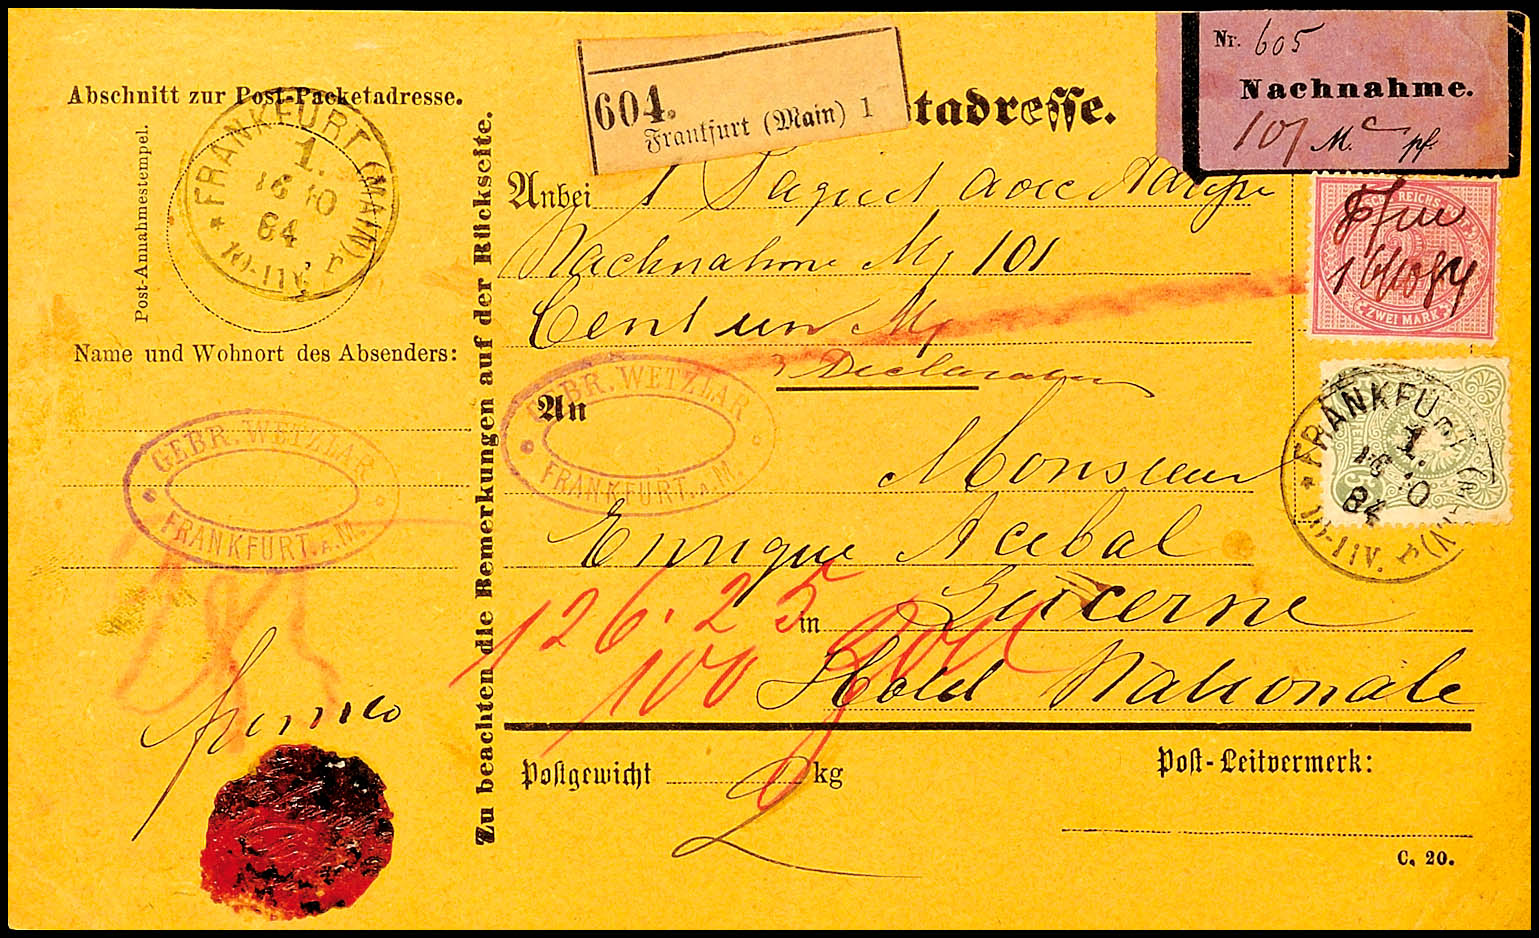 Abschnitt zur Post-Packetadresse.
Post-Annahmestempel.
FRANKFURT (MAIN)
1.
16 10
84
10-11V.
Name und Wohnort des Absenders:
GEBR. WETZLAR
FRANKFURT.A.M.
franco
Zu beachten die Bemerkungen auf der Rückseite.
604.
Frankfurt (Main) 1
tadresse.
Nr. 605
Nachnahme.
101 M. pf.
Anbei 1 avec
Nachnahme M 101
Cent un M
Declaration
GEBR. WETZLAR
FRANKFURT.A.M.
An Monsieur
Enrique Acebal
126.25
in Lucerne
100
Hotel Nationale
Postgewicht kg
2
Post-Leitvermerk:
C. 20.
16/10 84
ZWEI MARK
FRANKFURT (MAIN)
1.
16 10
84
10-11V.